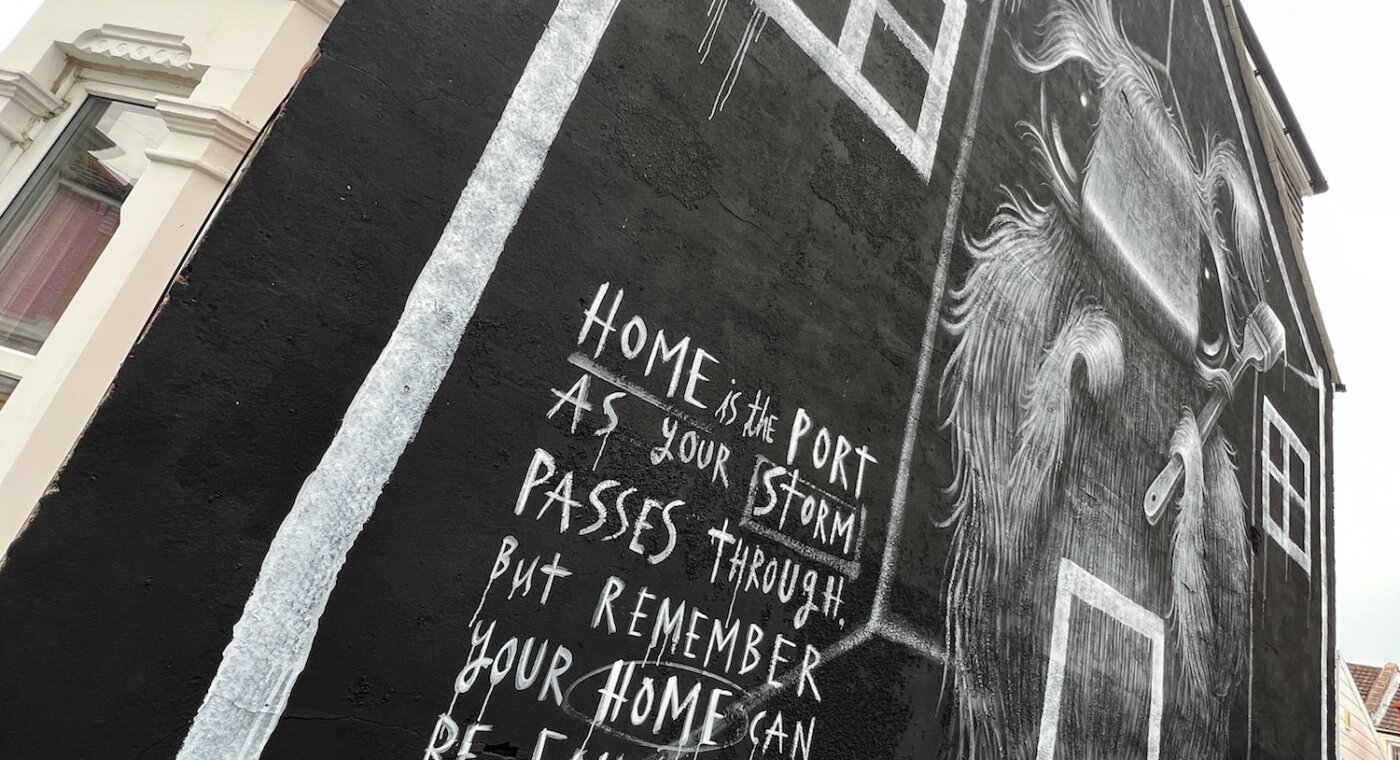 HOME is the PORT
AS YOUR STORM
PASSES THROUGH.
BUT REMEMBER
YOUR HOME CAN
BE